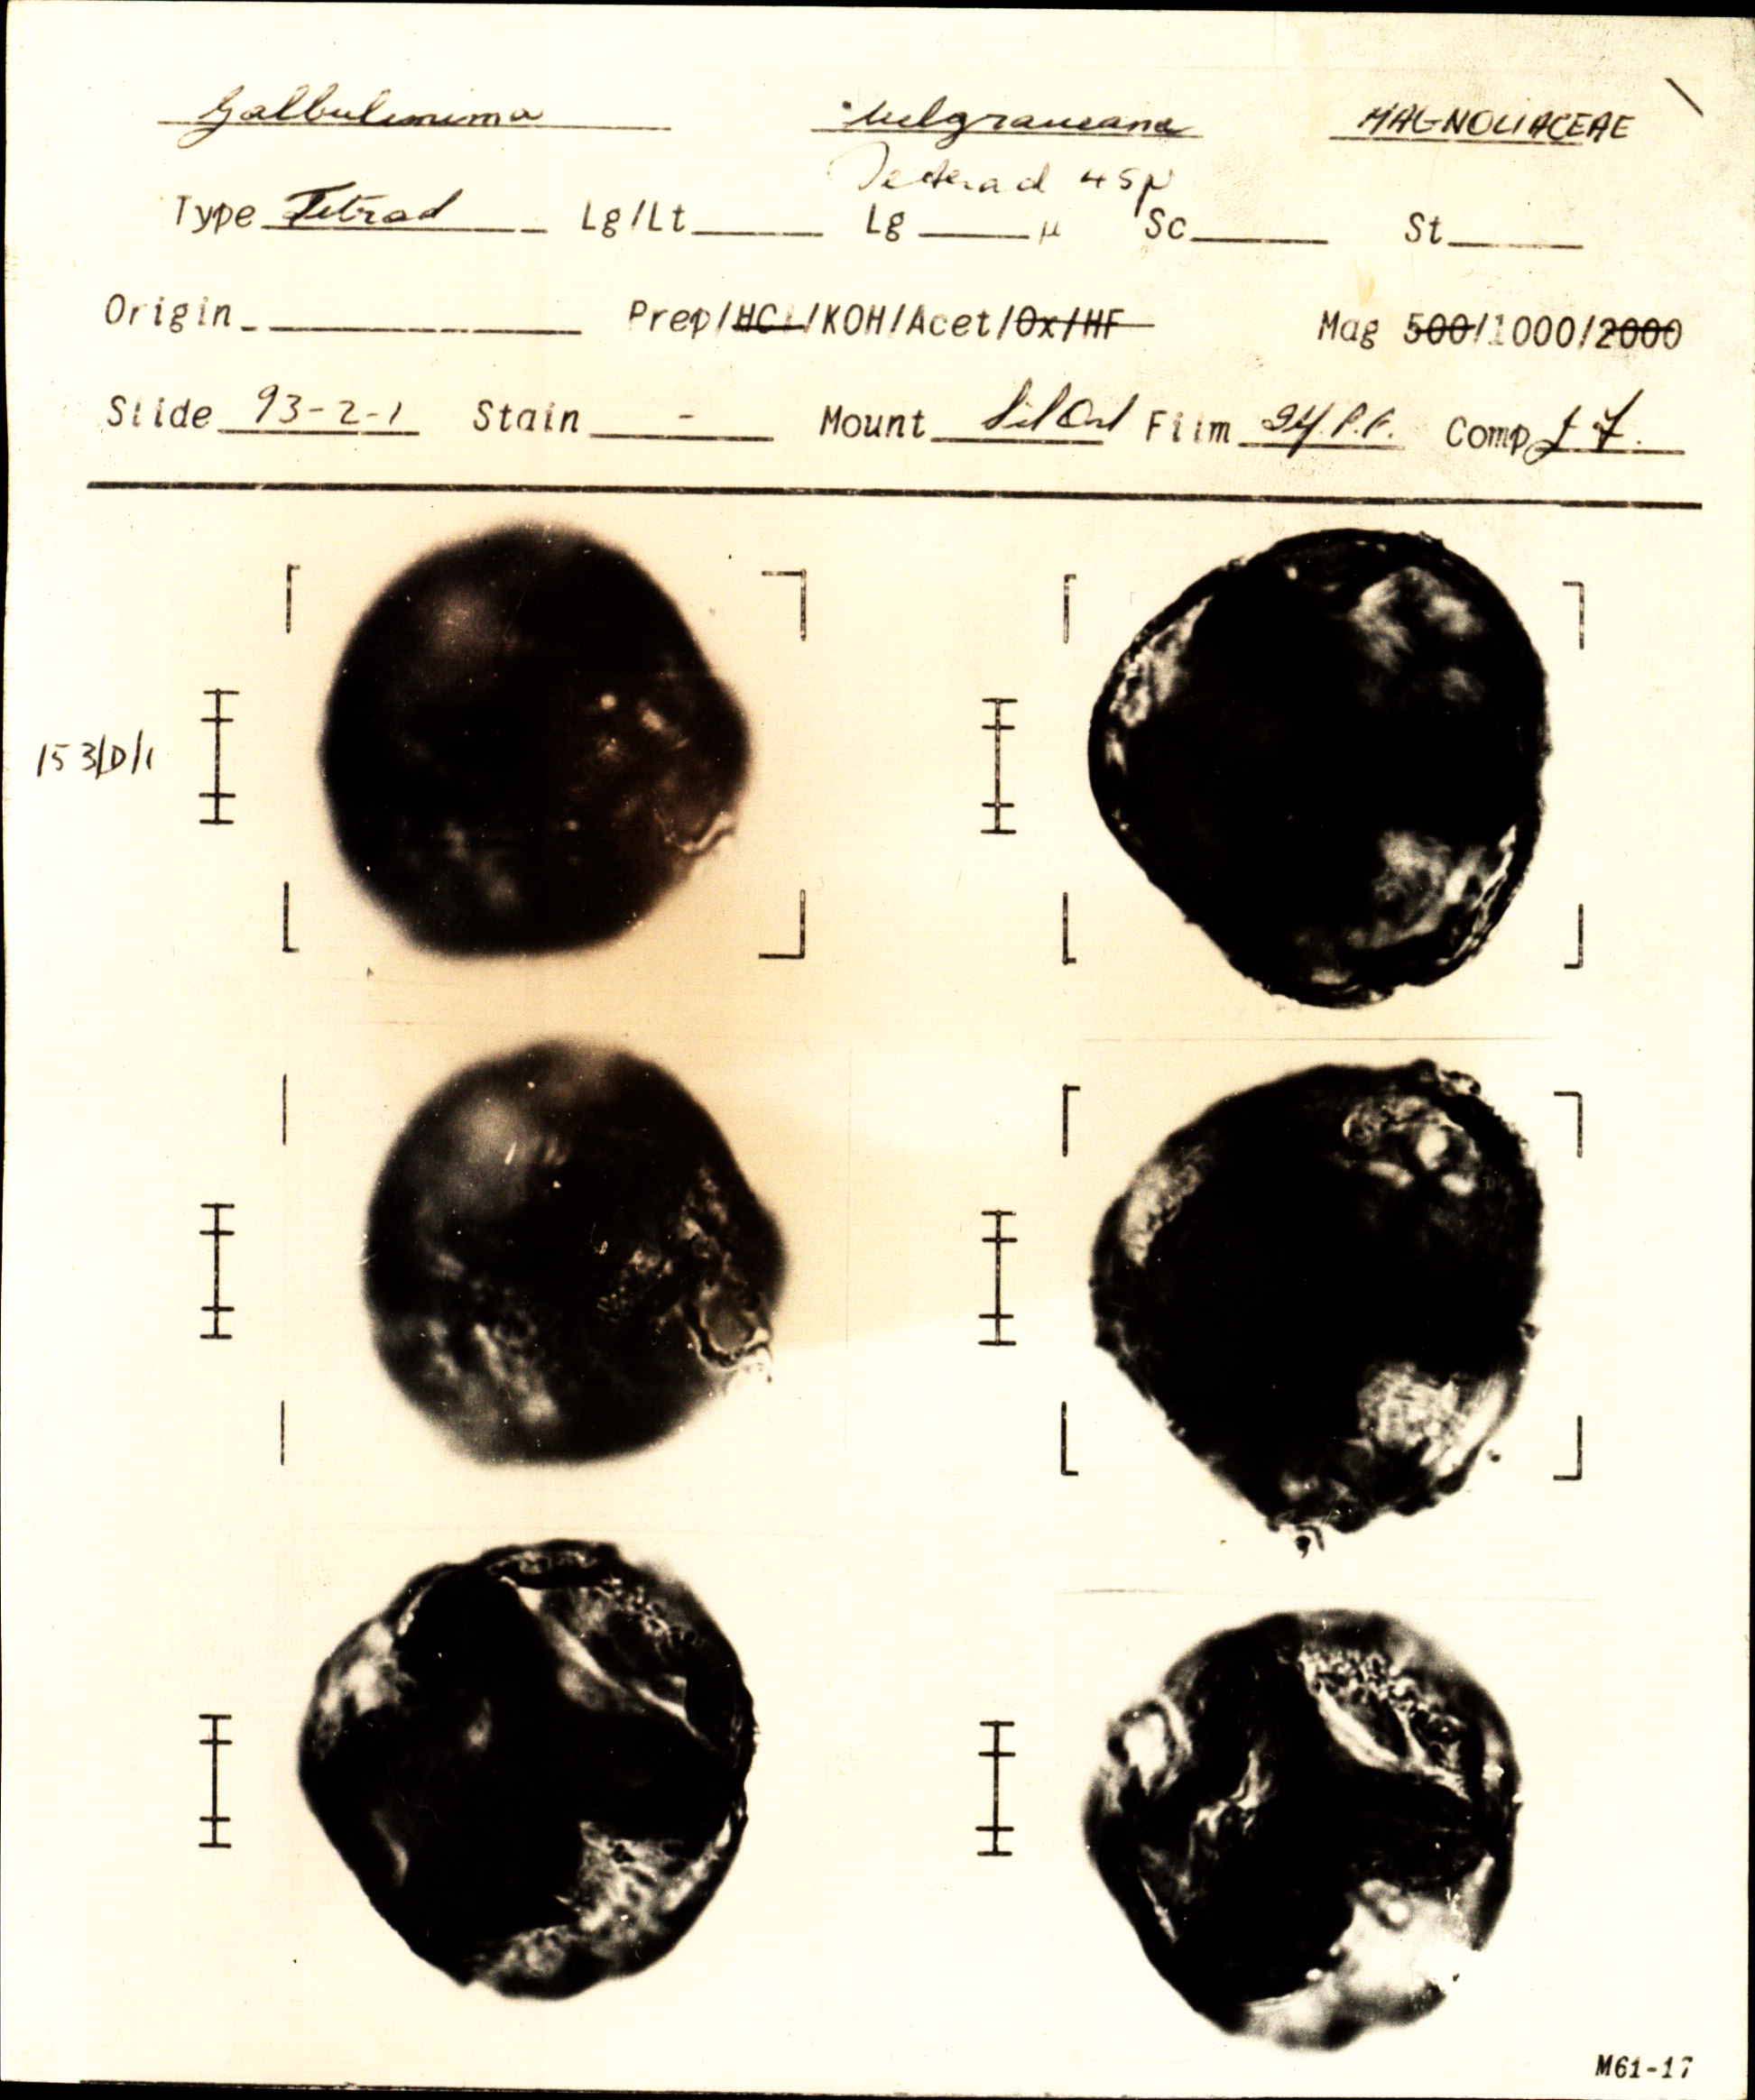 Galbulimima belgraveana MAGNOLIACEAE
Tetrad 45µ
Type Tetrad Lg/Lt Lg µ Sc St
Origin Prep/HCl/KOH/Acet/Ox/HF Mag 500/1000/2000
Slide 93-2-1 Stain - Mount Sil Oil Film P.F. Comp
153/D/1
M61-17